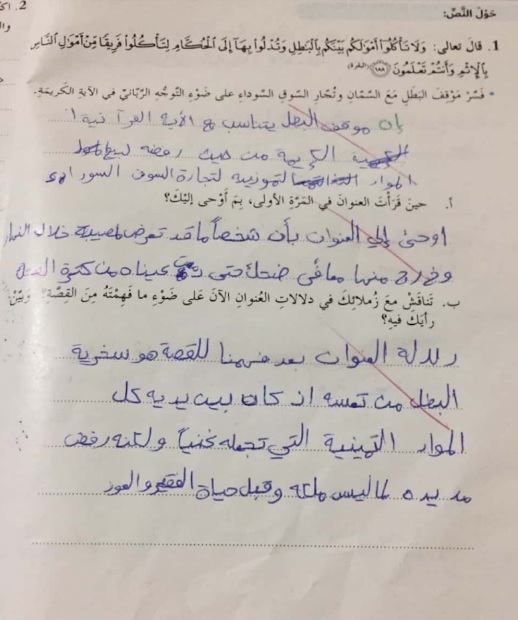 حَوْلَ النَّصِّ:
1. قالَ تعالى: وَلَا تَأْكُلُوٓا۟ أَمْوَٰلَكُم بَيْنَكُم بِٱلْبَٰطِلِ وَتُدْلُوا۟ بِهَآ إِلَى ٱلْحُكَّامِ لِتَأْكُلُوا۟ فَرِيقًا مِّنْ أَمْوَٰلِ ٱلنَّاسِ
بِٱلْإِثْمِ وَأَنتُمْ تَعْلَمُونَ ١٨٨ (البقرة)
• فَسِّرْ مَوْقِفَ البَطَلِ مَعَ السَّمّانِ وتُجّارِ السّوقِ السَّوداءِ على ضَوْءِ التَّوجُّهِ الرَّبّانيِّ في الآيَةِ الكَريمَةِ.
إن موقف البطل يتناسب مع الآية القرآنية
الكريمة من حيث رفضه لبيع
المواد التموينية لتجارة السوق السوداء
أ. حينَ قَرَأتَ العنوانَ في المَرَّةِ الأولى، بِمَ أَوْحى إليْكَ؟
اوحى إلي العنوان بأن شخصاً ما قد تعرض لمصيبة خلال النهار
وخرج منها معافى ضحك حتى عيناه من كثرة
ب. تَناقَشْ مَعَ زُملائِكَ في دلالاتِ العُنوانِ الآنَ على ضَوْءِ ما فَهِمْتَهُ مِنَ القِصَّةِ؟ وَبَيِّنْ
رأيَكَ فيهِ؟
دلالة العنوان بعد فهمنا للقصة هو سخرية
البطل من نفسه اذ كان بين يديه كل
المواد التموينية التي تجعله غنياً ولكنه رفض
مد يده لما ليس ملكه وقبل حياة الفقير و
2.